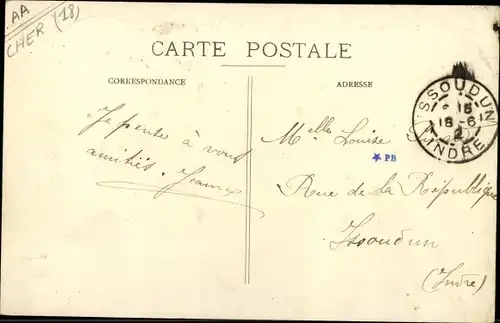 AA
CHER (18)
CARTE POSTALE
CORRESPONDANCE
ADRESSE
Je pense à vous
amitiés. Jeanne
Melles Louise
PB
Rue de la République
Issoudun
(Indre)
ISSOUDUN
16
16-6
INDRE